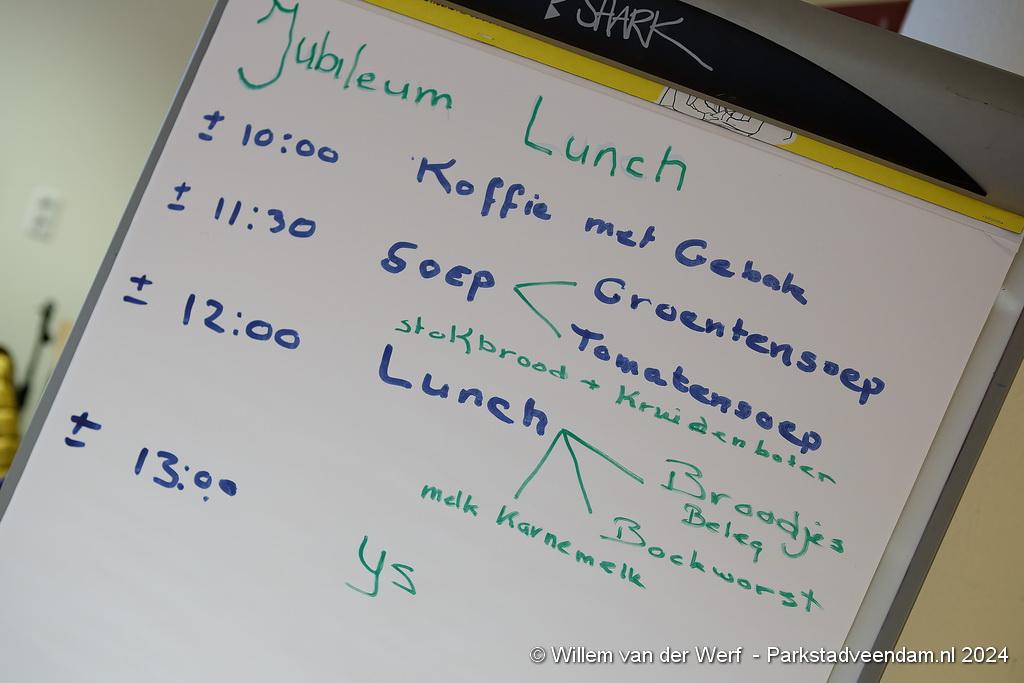 SHARK
Jubileum Lunch
± 10:00 Koffie met Gebak
± 11:30 Soep Groentensoep
Tomatensoep
stokbrood + Kruidenboter
± 12:00 Lunch
Broodjes
Beleg
Bockworst
melk Karnemelk
± 13:00 ys
© Willem van der Werf - Parkstadveendam.nl 2024